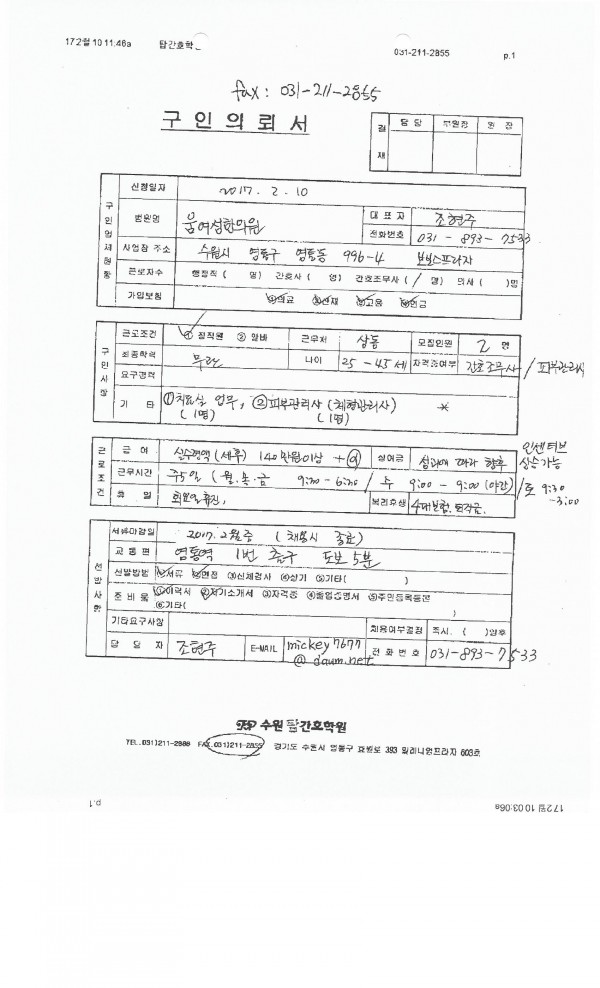 17 2월 10 11:46a 탑간호학_ 031-211-2855 p.1
fax: 031-211-2855
구 인 의 뢰 서
결재 담 당 부원장 원 장
구인업체현황
신청일자 2017. 2. 10
병원명 움여성한의원 대 표 자 조현주
전화번호 031-893-7533
사업장 주소 수원시 영통구 영통동 996-4 보보스프라자
근로자수 행정직 ( 명) 간호사 ( 명) 간호조무사 ( / 명) 의사 ( )명
가입보험 ①의료 ②산재 ③고용 ④연금
구인사항
근로조건 ① 정직원 ② 알바 근무처 상동 모집인원 2 명
최종학력 무관 나이 25-45세 자격증여부 간호조무사 / 피부관리사
요구경력
기 타 ①치료실 업무, ②피부관리사 (체형관리사)
(1명) (1명)
근로조건
급 여 실수령액 (세후) 140만원이상 +@ 상여금 성과에 따라 향후 인센티브 상승가능
근무시간 주5일 (월.목.금 9:30-6:30 / 수 9:00-9:00 (야간) / 토 9:30-3:00
휴 일 화요일휴진, 복리후생 4대보험. 퇴직금.
선발사항
서류마감일 2017. 2월중 (채용시 종료)
교 통 편 영통역 1번 출구 도보 5분
선발방법 ①서류 ②면접 ③신체검사 ④상기 ⑤기타( )
준 비 물 ①이력서 ②자기소개서 ③자격증 ④졸업증명서 ⑤주민등록등본
⑥기타( )
기타요구사항 채용여부결정 즉시. ( )일후
담 당 자 조현주 E-MAIL mickey7677@daum.net 전 화 번 호 031-893-7533
수원 탑간호학원
TEL.031)211-2888 FAX.031)211-2855 경기도 수원시 영통구 효원로 393 밀레니엄프라자 603호
17 2월 10 03:06a p.1